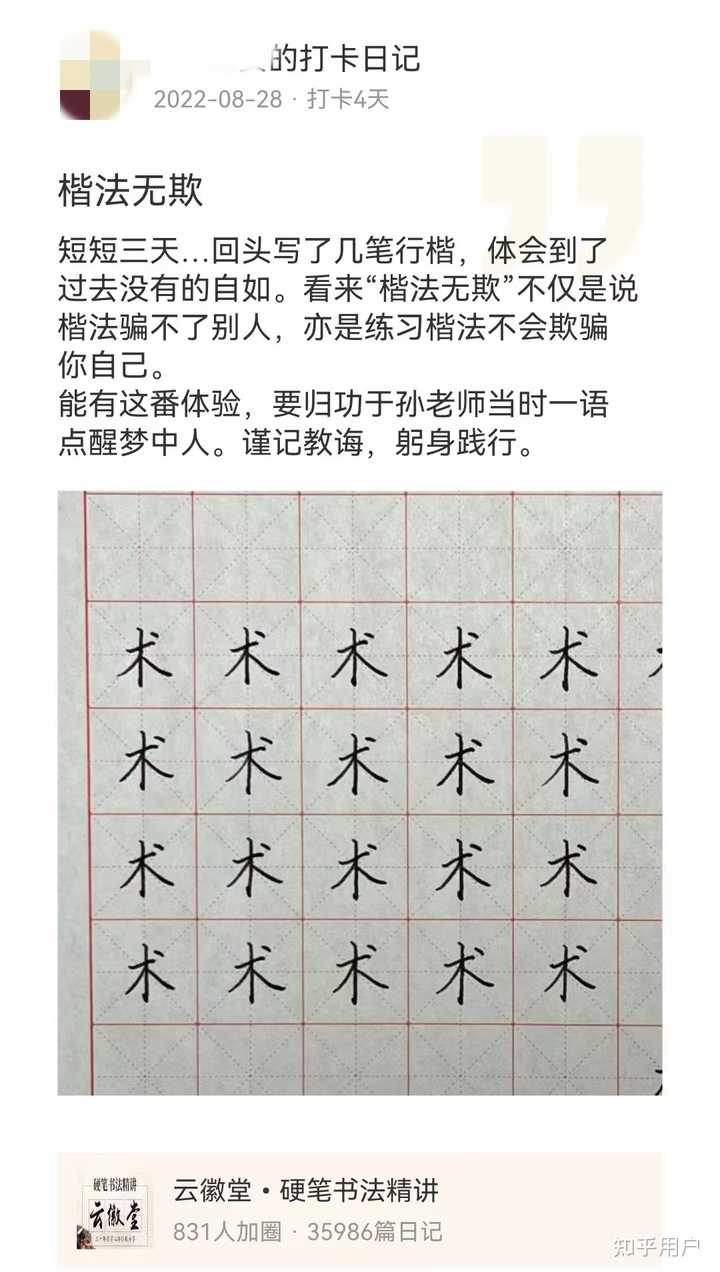 的打卡日记
2022-08-28 · 打卡4天
楷法无欺
短短三天…回头写了几笔行楷，体会到了
过去没有的自如。看来“楷法无欺”不仅是说
楷法骗不了别人，亦是练习楷法不会欺骗
你自己。
能有这番体验，要归功于孙老师当时一语
点醒梦中人。谨记教诲，躬身践行。
术 术 术 术 术
术 术 术 术 术
术 术 术 术 术
术 术 术 术 术
硬笔书法精讲
云徽堂
云徽堂·硬笔书法精讲
831人加圈 · 35986篇日记
知乎用户